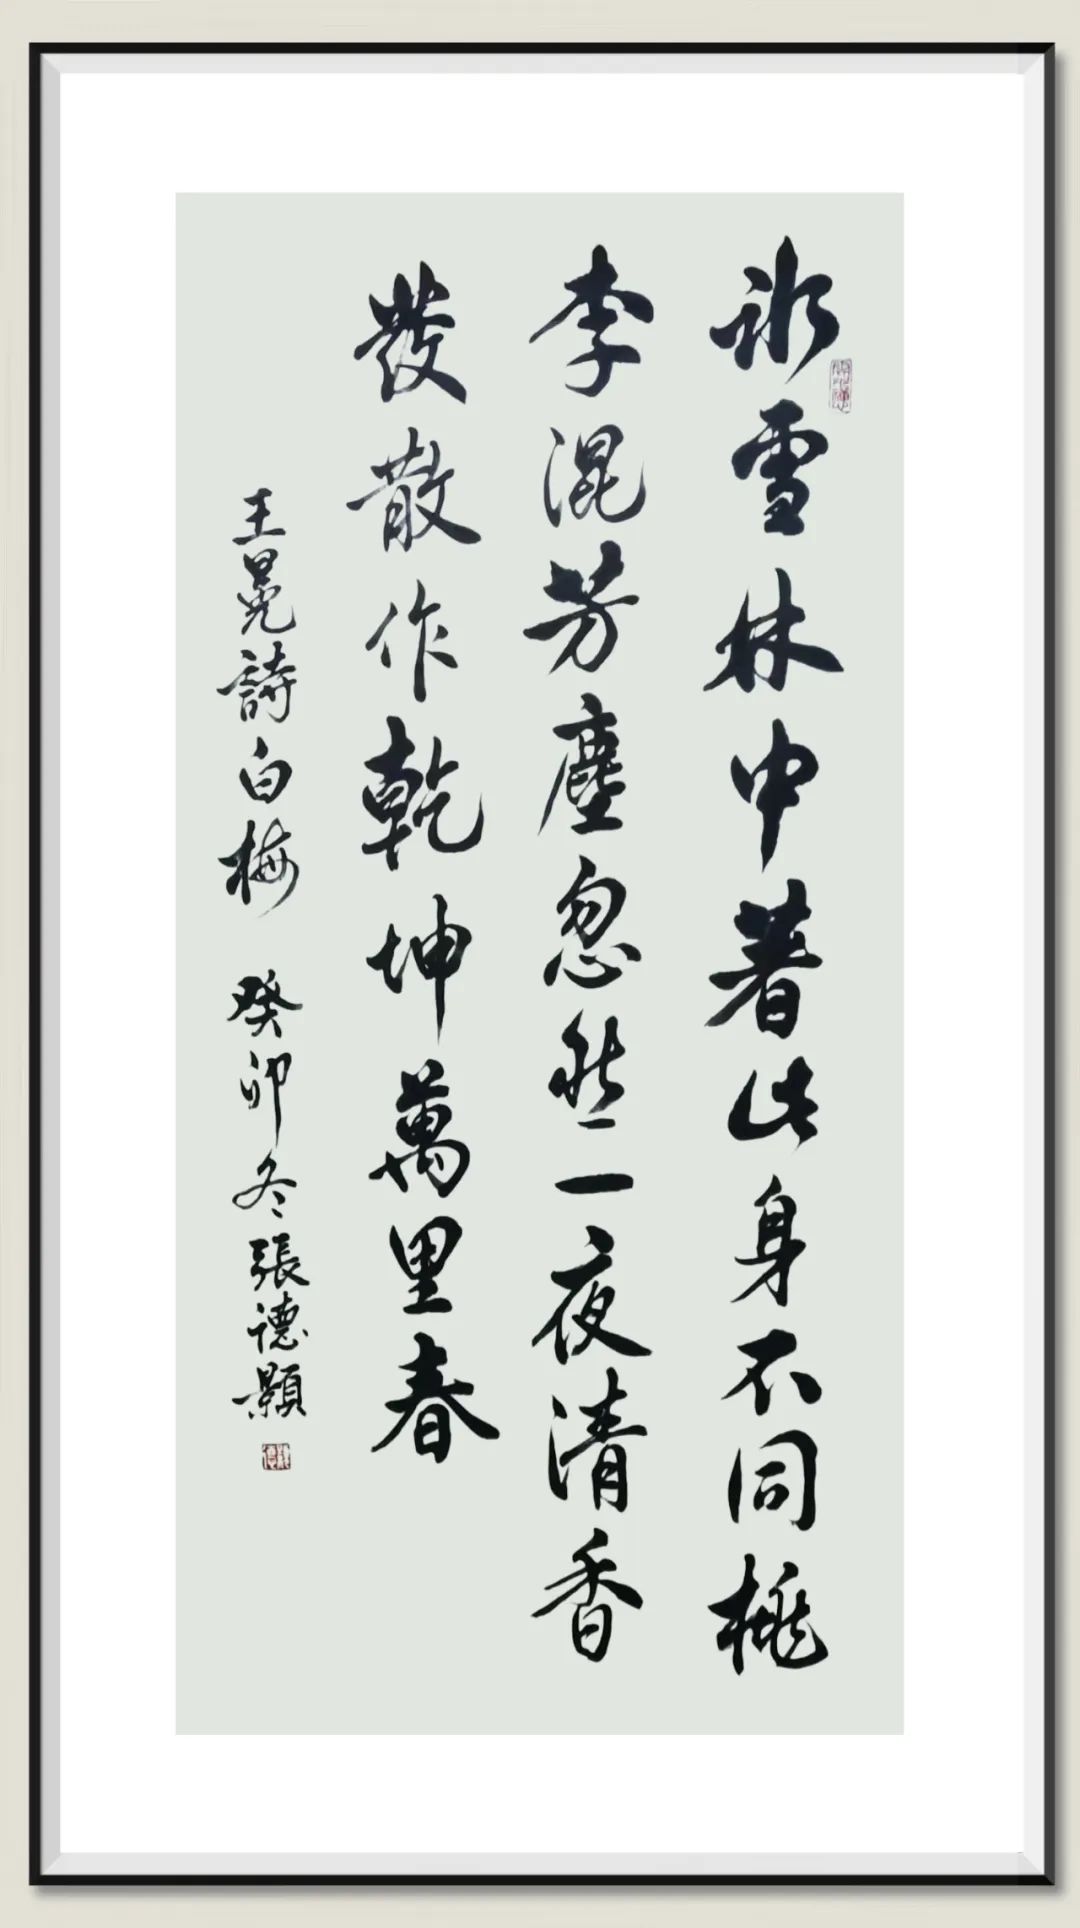 冰雪林中著此身不同桃
李混芳塵忽然一夜清香
發散作乾坤萬里春
王冕詩白梅 癸卯冬張德顥